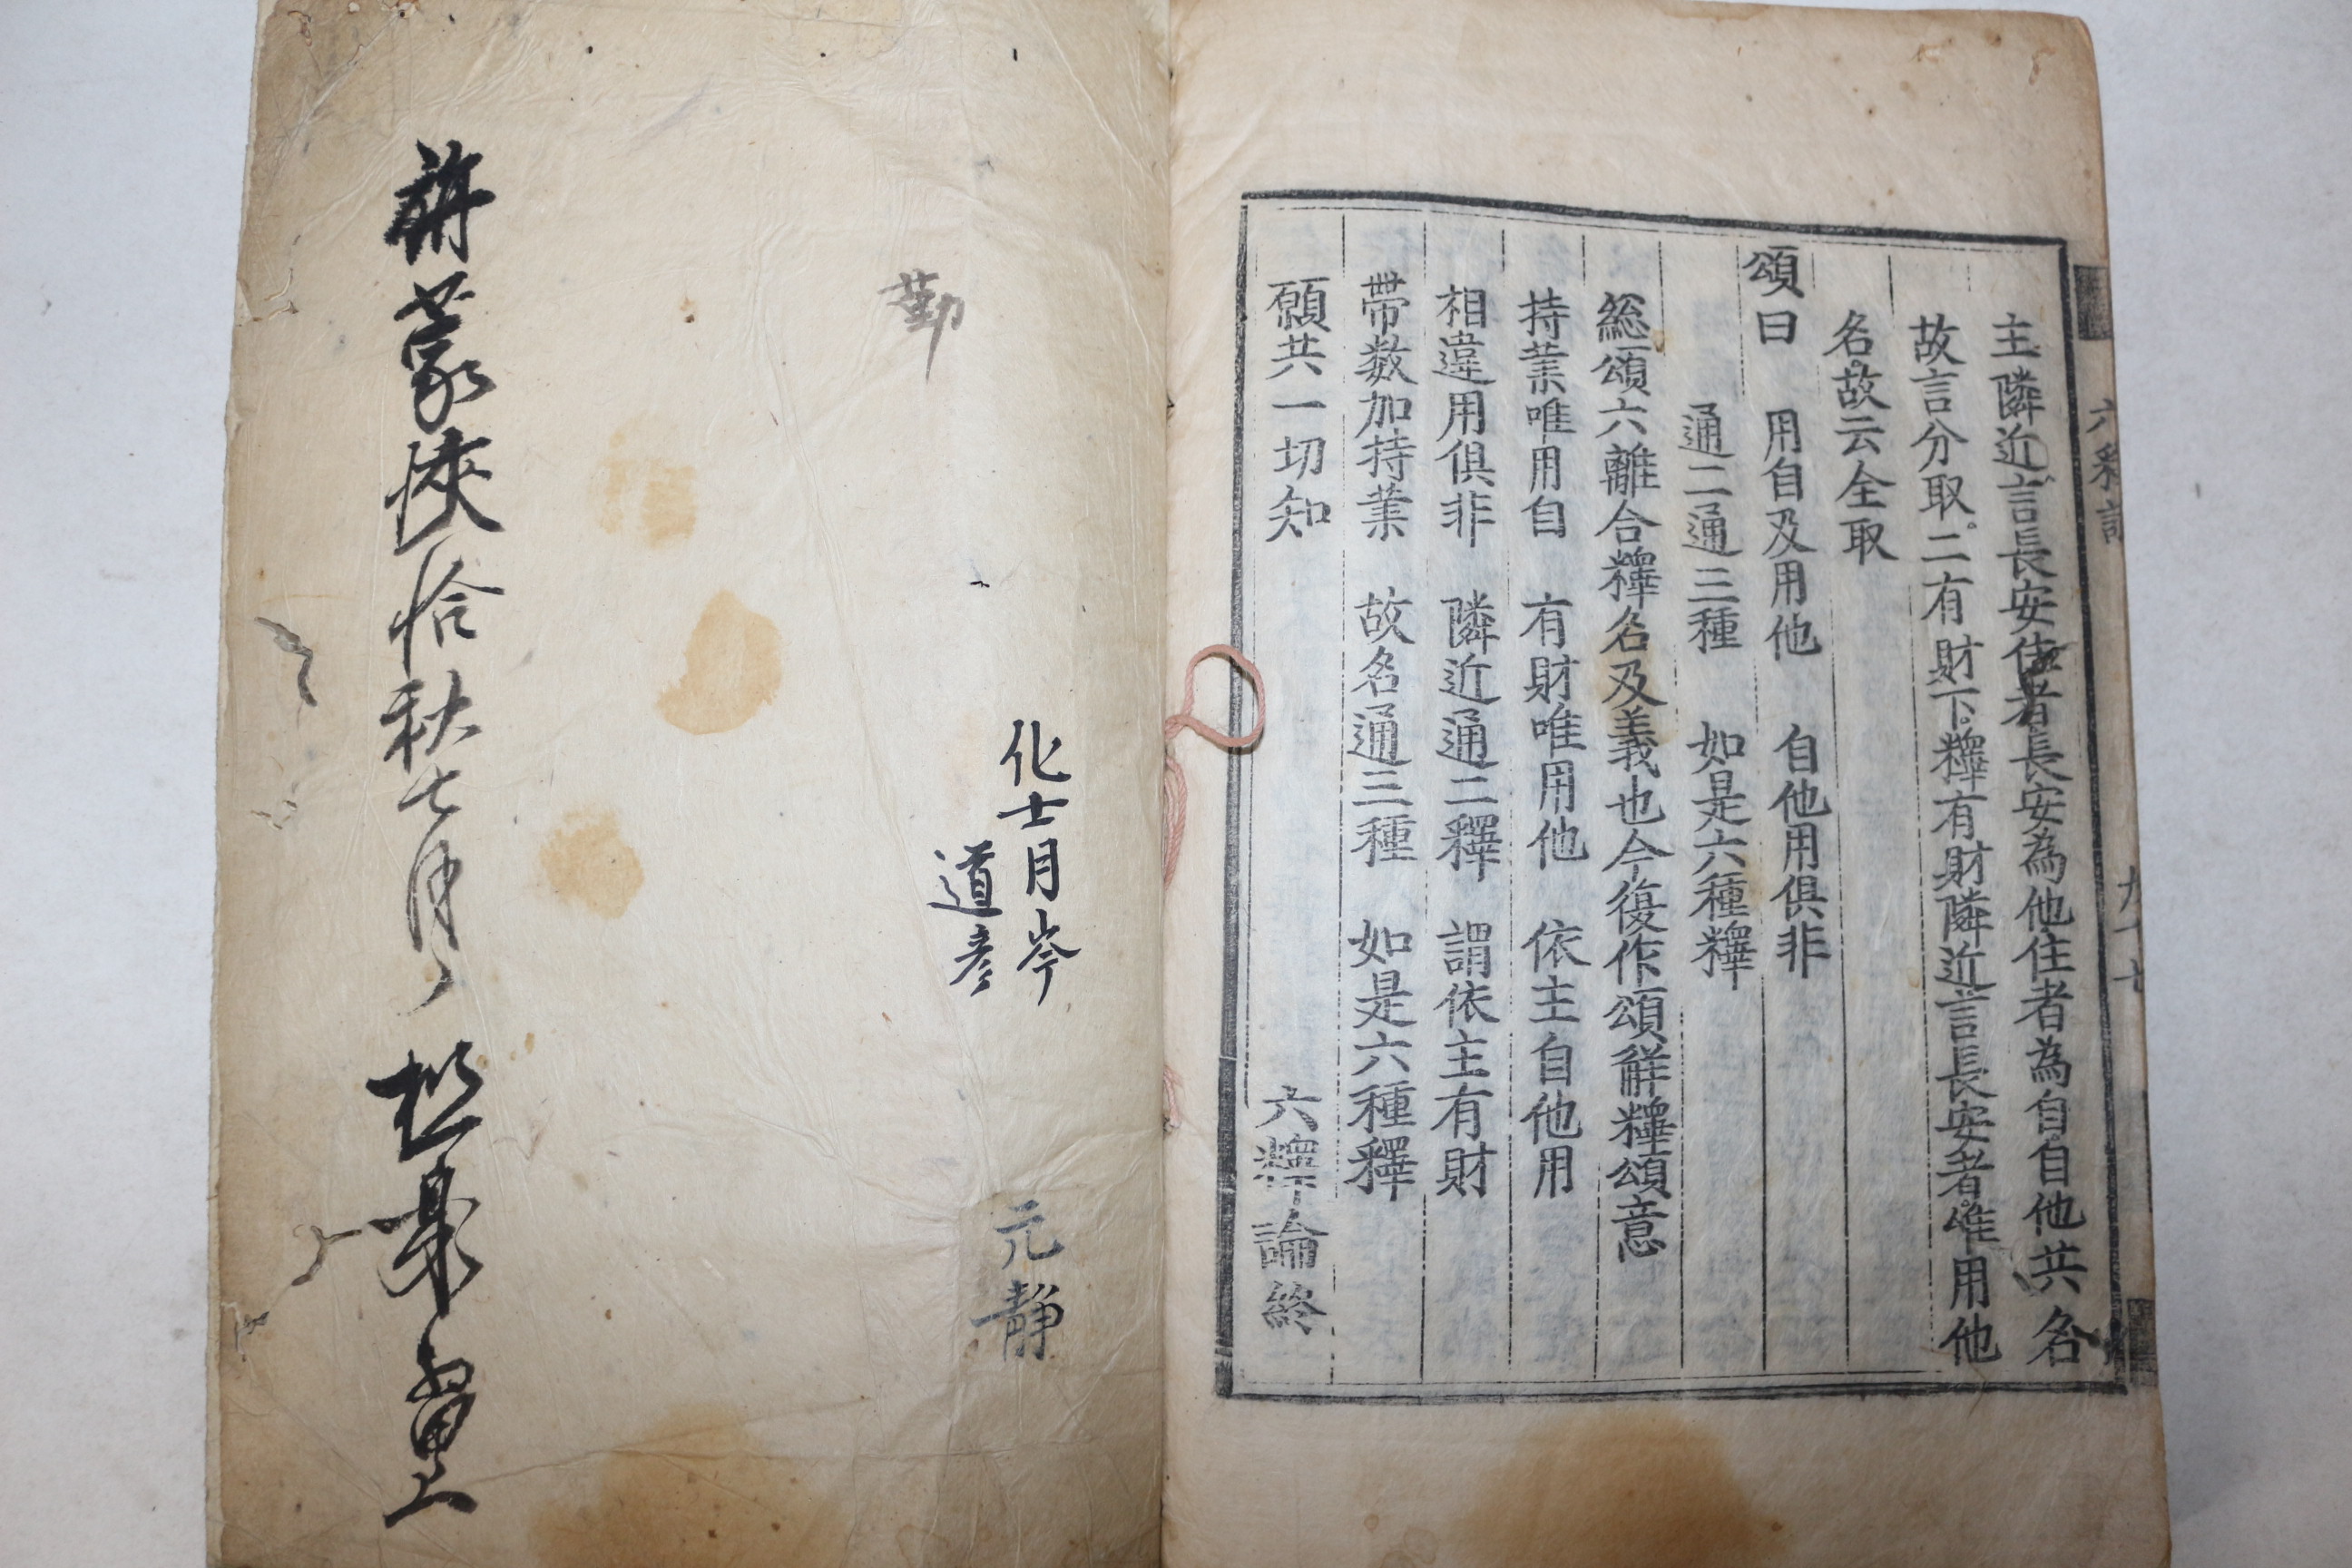 主隣近言長安住者長安為他住者為自自他共名
故言分取二有財下釋有財隣近言長安者唯用他
名故云全取
頌曰 用自及用他 自他用俱非
通二通三種 如是六種釋
緫頌六離合釋名及義也今復作頌觧釋頌意
持業唯用自 有財唯用他 依主自他用
相違用俱非 隣近通二釋 謂依主有財
帶数加持業 故名通三種 如是六種釋
願共一切知 六釋論終
化士月岑
道彦
元靜
勤
恰秋七月